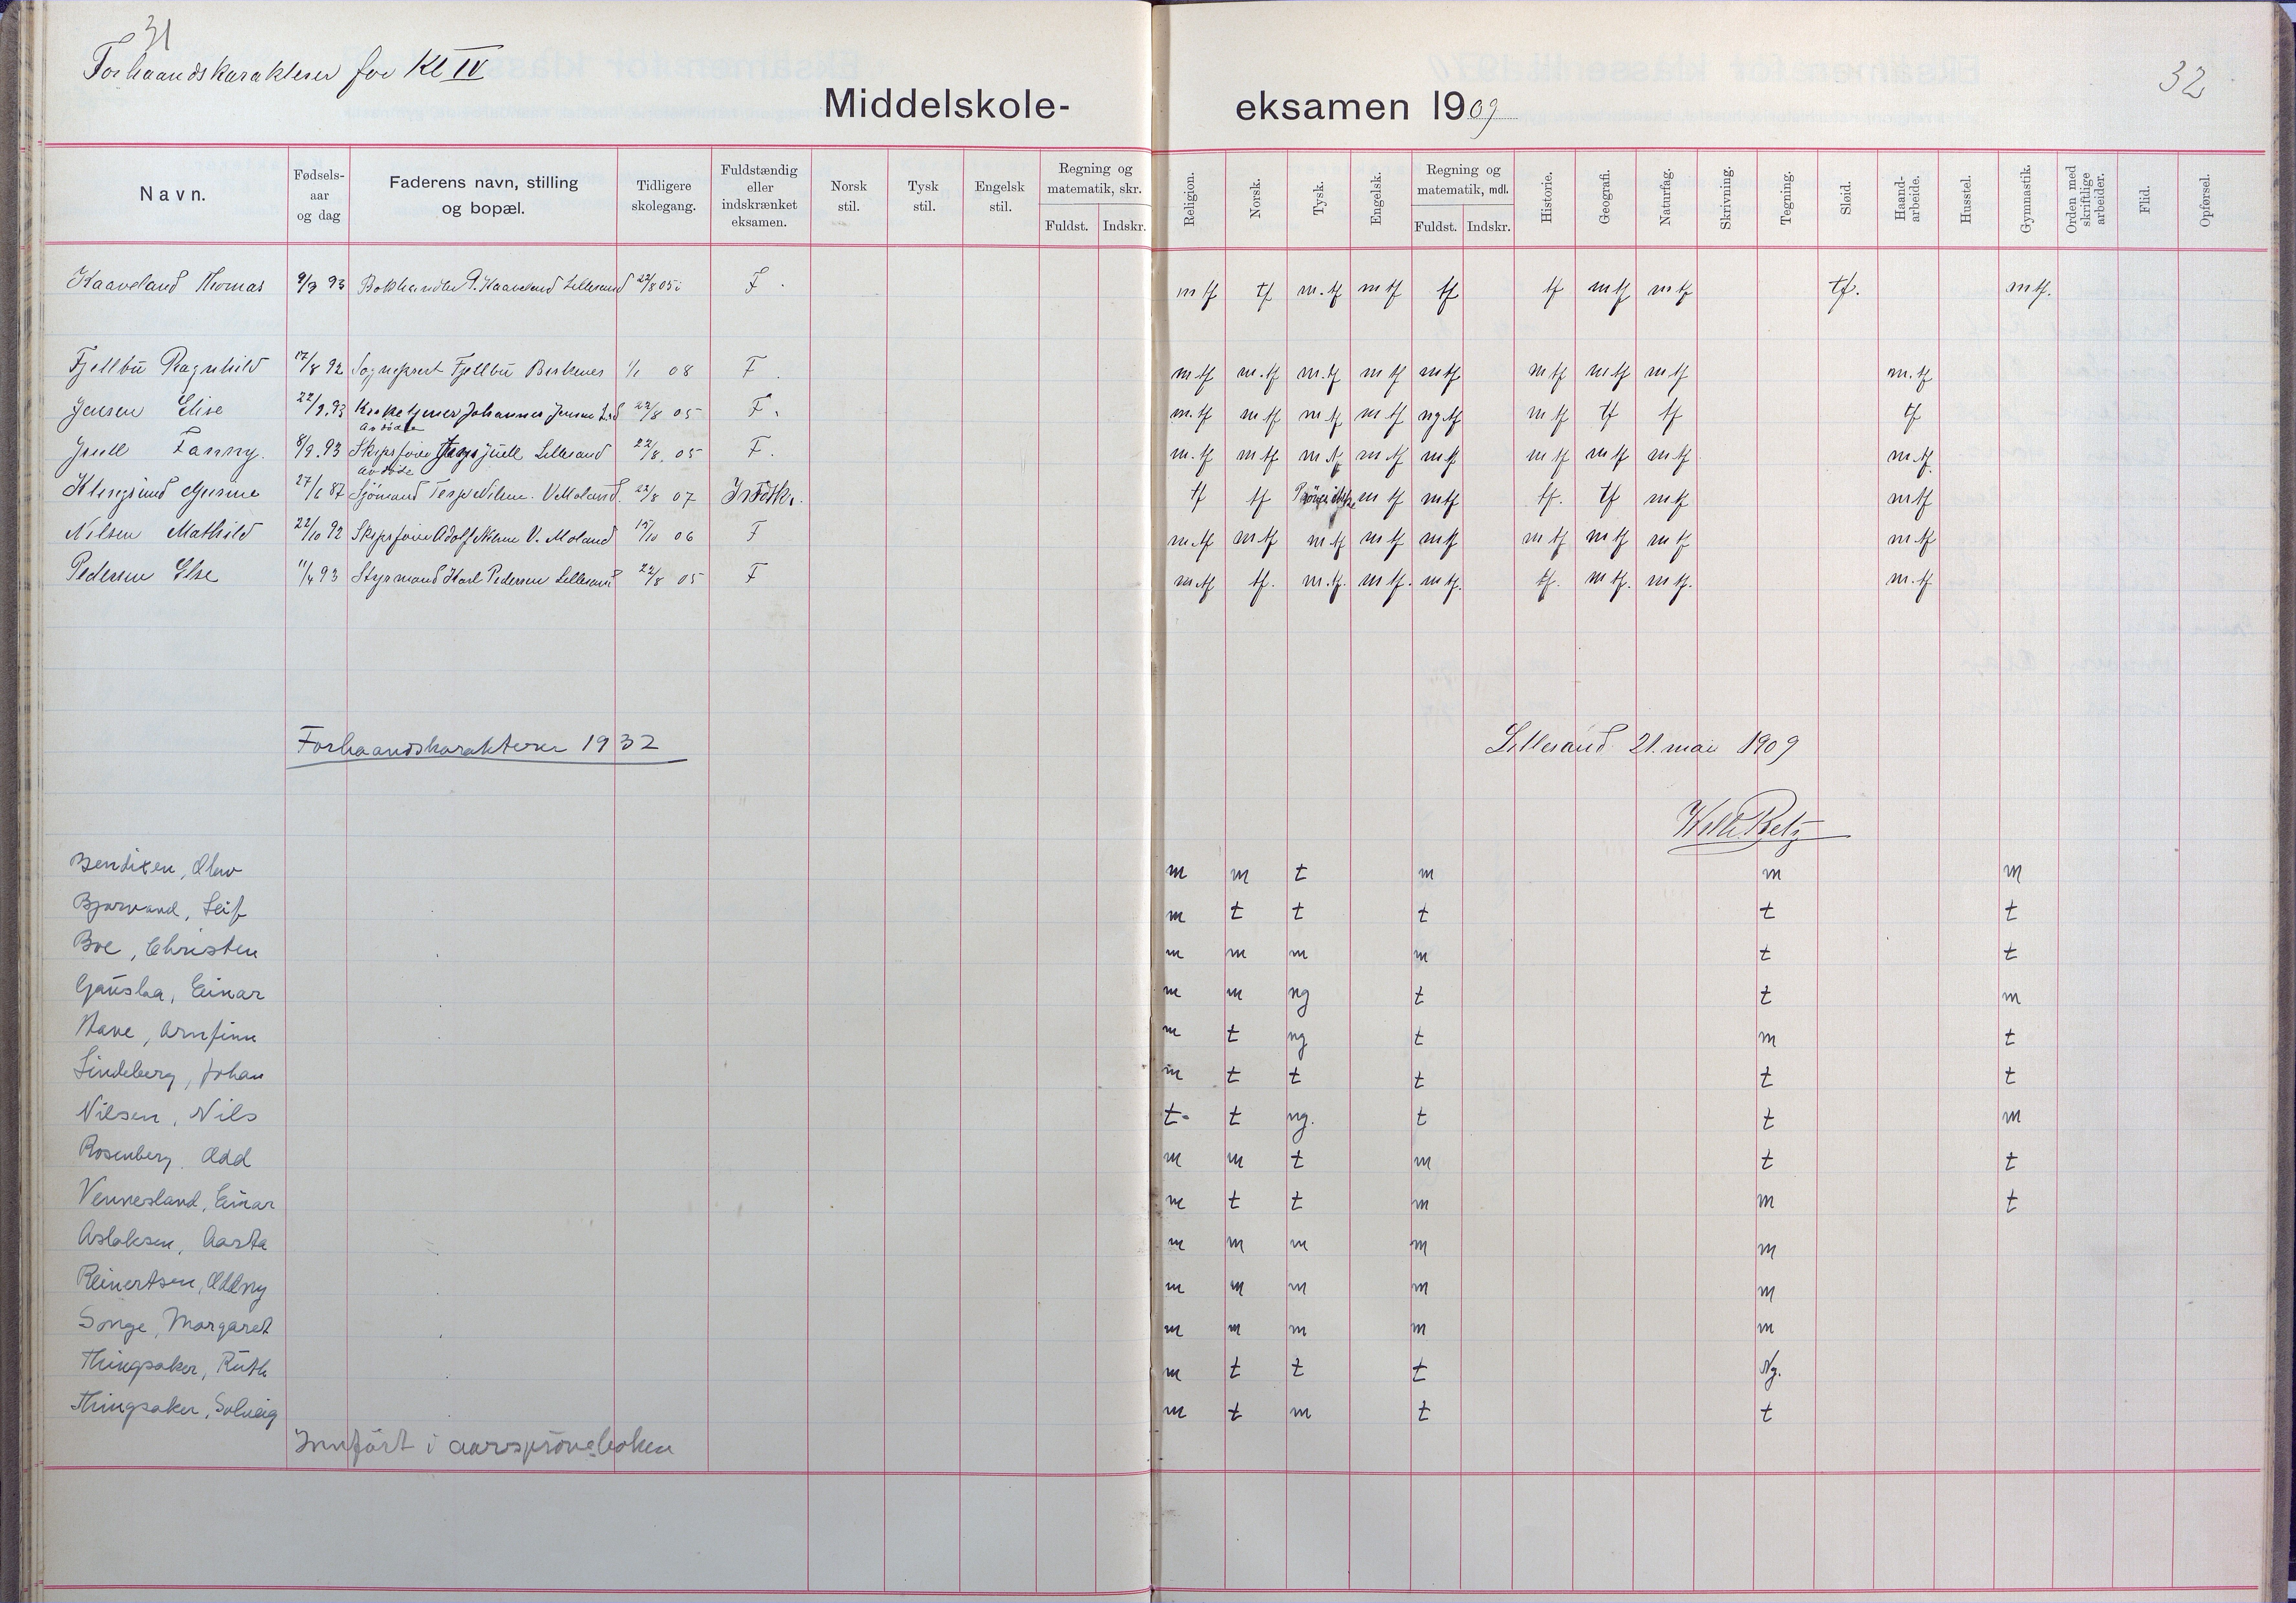 31
32
Forhaandskarakterer for Kl IV
Middelskole- eksamen 1909
Navn. Fødsels-aar og dag Faderens navn, stilling og bopæl. Tidligere skolegang. Fuldstændig eller indskrænket eksamen. Norsk stil. Tysk stil. Engelsk stil. Regning og matematik, skr. Fuldst. Indskr. Religion. Norsk. Tysk. Engelsk. Regning og matematik, mdl. Fuldst. Indskr. Historie. Geografi. Naturfag. Skrivning. Tegning. Sløid. Haand-arbeide. Husstel. Gymnastik. Orden med skriftlige arbeider. Flid. Opførsel.
Kaaveland Thomas 9/3 93 Bokhandler P. Kaaveland Lillesand 22/8 05 F. mtf tf m.tf mtf tf tf mtf mtf tf. mtf.
Fjellbu Ragnhild 17/8 92 Sogneprest Fjellbu Birkenes 1/1 08 F. m.tf m.tf m.tf mtf mtf mtf mtf mtf m.tf
Jensen Elise 22/9.93 Kirketjener Johannes Jensen L.sd 22/8 05 F. m.tf mtf mtf mtf ngtf mtf tf tf tf
avdøde
Juell Fanny. 8/9.93 Skipsfører Juell Lillesand 22/8. 05 F. m.tf mtf m.tf m.tf mtf mtf mtf mtf m.tf.
avdøde
27/6 87 Sjömand Terje Nilsen. V Moland. 22/8 07 Indskr. tf tf mtf mtf tf. tf mtf mtf
Nilsen Mathild 22/10 92 Skipsfører Adolf Nilsen V. Moland 15/10 06 F m.tf mtf mtf mtf mtf mtf mtf mtf m.tf
Pedersen Else 11/4 93 Styrmand Karl Pedersen Lillesand 22/8 05 F m.tf tf. m.tf. mtf. m.tf. tf. mtf. mtf. m.tf
Forhaandskarakterer 1932
Lillesand 21. mai 1909
Bendixen, Olav m m t m m m
Bjorvand, Leif m t t t t t
Boe, Christen m m m m t t
Gauslaa, Einar m m ng t t m
Have, Arnfinn m t ng t m t
Lindeberg, Johan m t t t t t
Nilsen, Nils t- t ng. t t m
Rosenberg, Odd m m t m t t
Vennesland, Einar m t t m m t
Aslaksen, Aasta m m m m m
Reinertsen, Oddny m m m m m
Songe, Margaret m m m m m
Thingsaker, Ruth m t t t Ng.
Thingsaker, Solveig m t m t t
Innført i aarsprøveboken